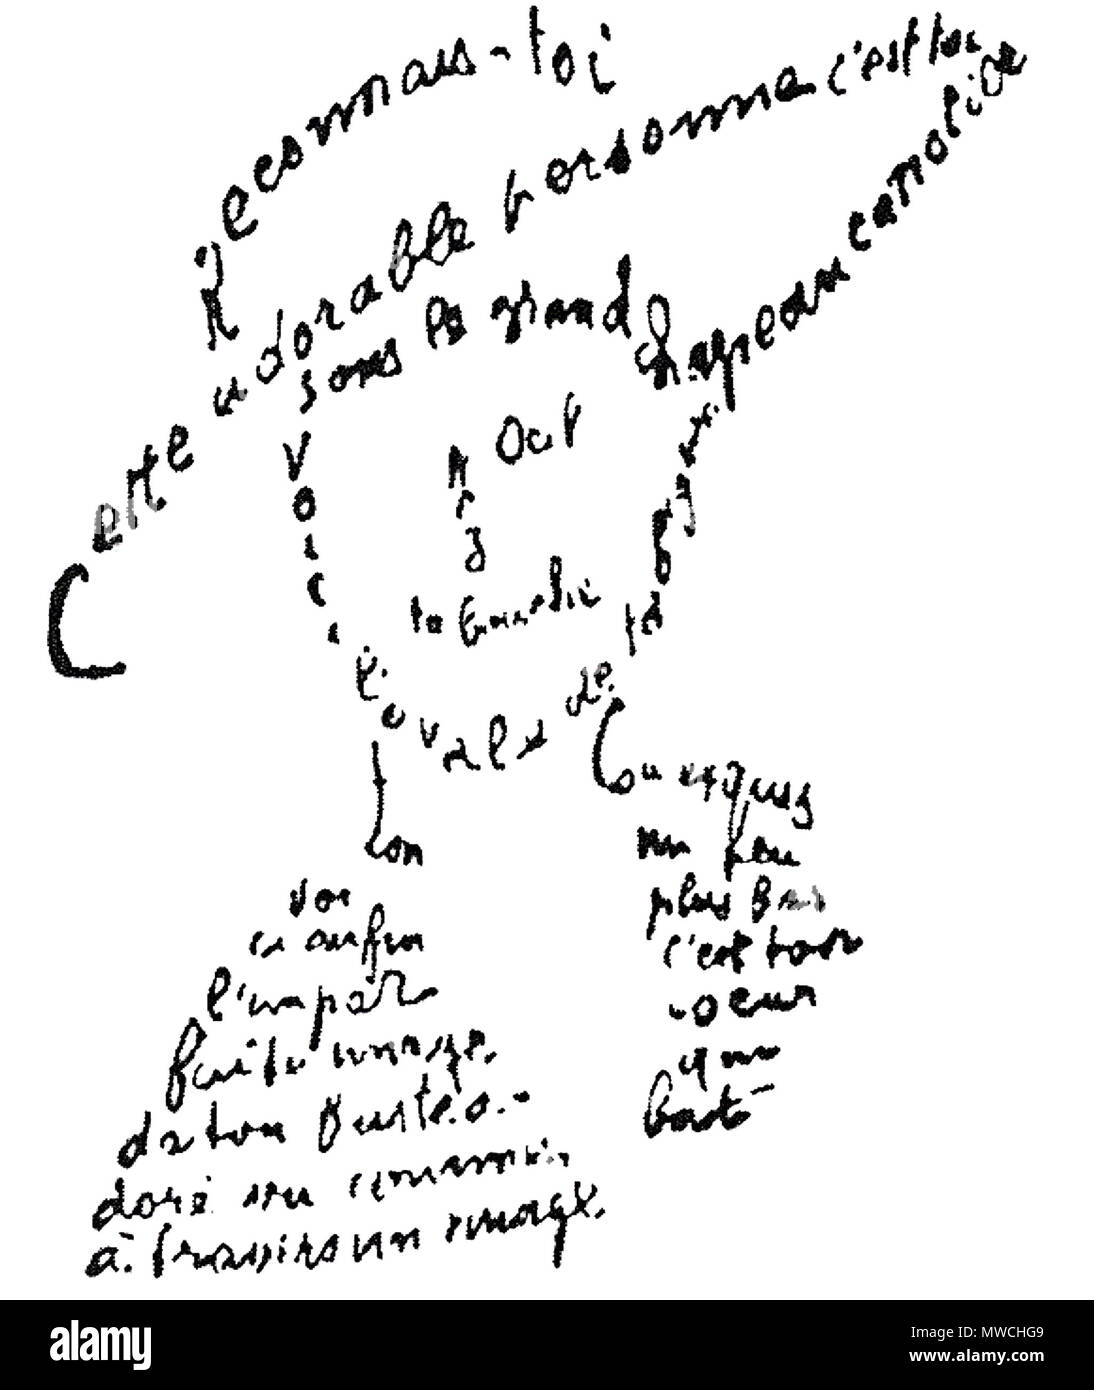 Reconnais-toi
Cette adorable personne c'est toi
sous le grand chapeau canotier
Oeil
Nez
ta bouche
Voici l'ovale de ta figure
ton
Cou exquis
voi
ci enfin
l'impar
faite image
de ton buste a
doré vu comme
à travers un nuage
un peu
plus bas
c'est ton
coeur
qui
bat
a alamy stock photo
alamy
Image ID: MWCHG9
www.alamy.com